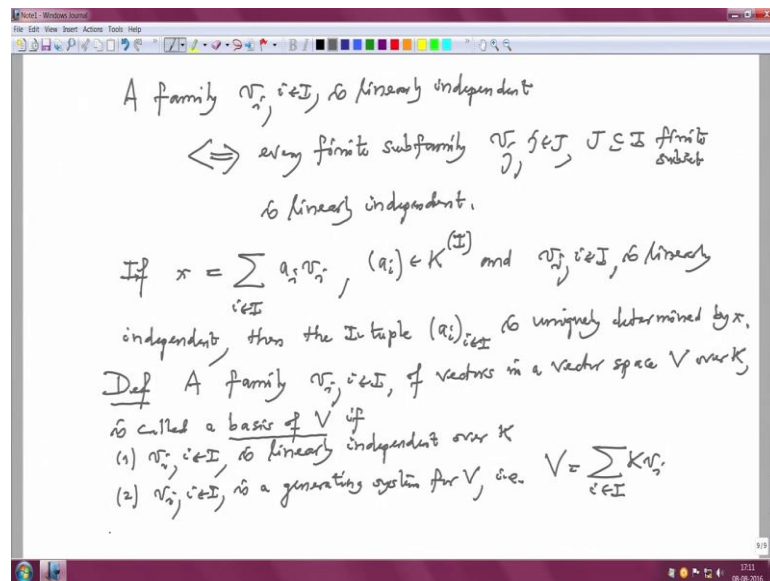 Note1 - Windows Journal
File Edit View Insert Actions Tools Help
A family v_i, i∈I, is linearly independent
⟺ every finite subfamily v_j, j∈J, J⊆I finite subset
is linearly independent.
If x = ∑_{i∈I} a_i v_i, (a_i) ∈ K^{(I)} and v_i, i∈I, is linearly
independent, then the I-tuple (a_i)_{i∈I} is uniquely determined by x.
Def A family v_i, i∈I, of vectors in a vector space V over K,
is called a basis of V if
(1) v_i, i∈I, is linearly independent over K
(2) v_i, i∈I, is a generating system for V, i.e. V = ∑_{i∈I} K v_i
9/9
17:11
08-08-2016